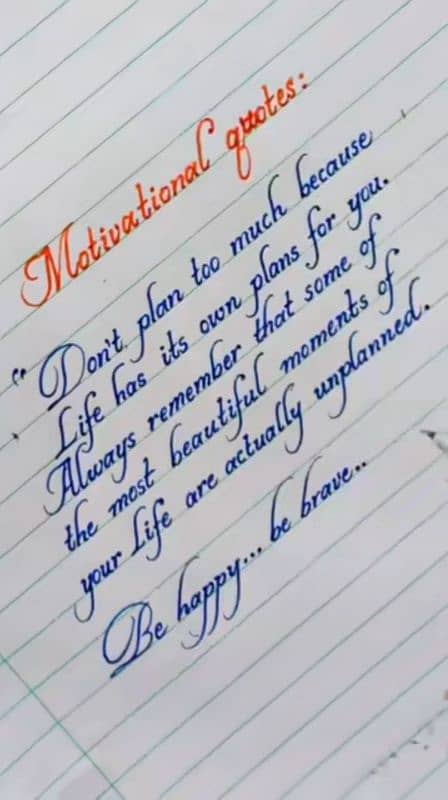 Motivational quotes:
"Don't plan too much because
Life has its own plans for you.
Always remember that some of
the most beautiful moments of
your Life are actually unplanned.
Be happy... be brave..